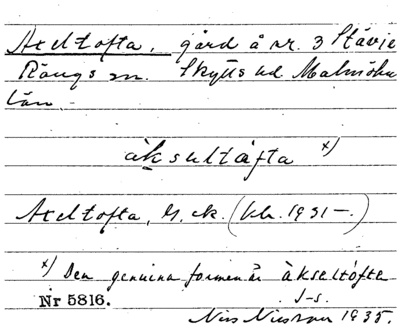 Axeltofta, gård å nr. 3 Stävie
Rängs sn. Skytts hd Malmöhus
län.
àksultåfta x)
Axeltofta, G. ek. (kbr. 1931–.)
x) Den genuina formen är àkseltófta
Nr 5816.
J-s.
1935.